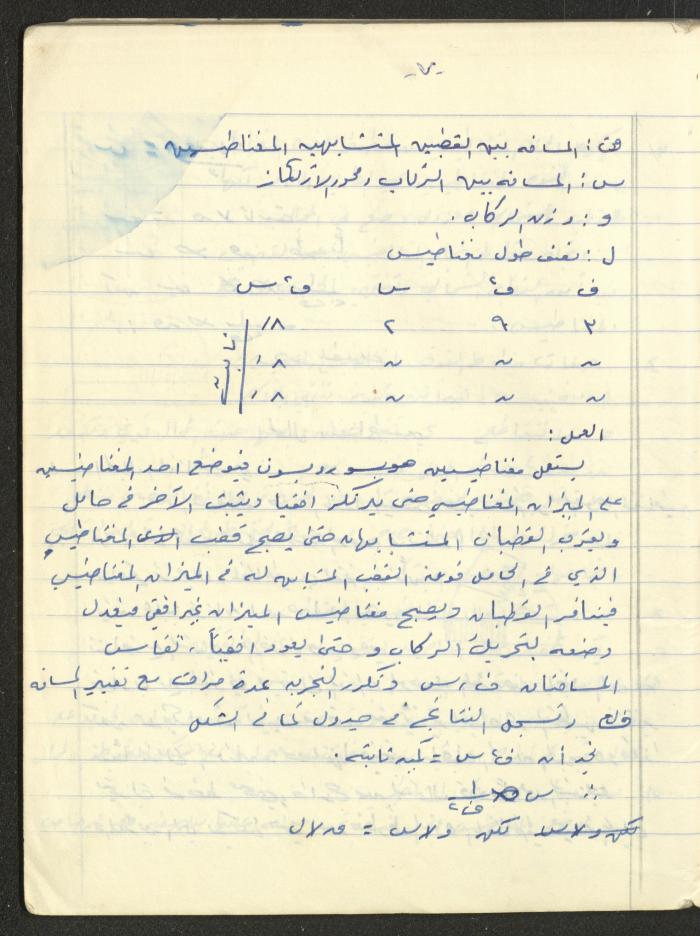 -٧-
ف: المسافه بين القطبين المتشابهين المغناطيسين
س: المسافه بين الركاب ومحور الارتكاز
و: وزن الركاب.
ل: نصف طول مغناطيس
ف ف٢ س ف٢ س
٣ ٩ ٢ ١٨
〃 〃 〃 ١٨
〃 〃 〃 ١٨
ثابته
العمل:
يستعمل مغناطيسين روبسون فيوضع احد المغناطيسين
على الميزان المغناطيسي حتى يرتكز افقيا ويثبت الآخر في حامل
ويقرب القطبان المتشابهان حتى يصبح قطب المغناطيس
الذي في الحامل فوق القطب المشابه له في الميزان المغناطيسي
فيتنافر القطبان ويصبح مغناطيس الميزان غير افقي فيعدل
وضعه بتحريك الركاب و حتى يعود افقياً، تقاس
المسافتان ف، س وتكرر التجربه عدة مرات مع تغيير المسافه
ف وتسجل النتائج في جدول كما في الشكل
نجد أن ف٢ س = كميه ثابته.
∴ س ∝ ١/ف٢
لكن و×س = ق×ل